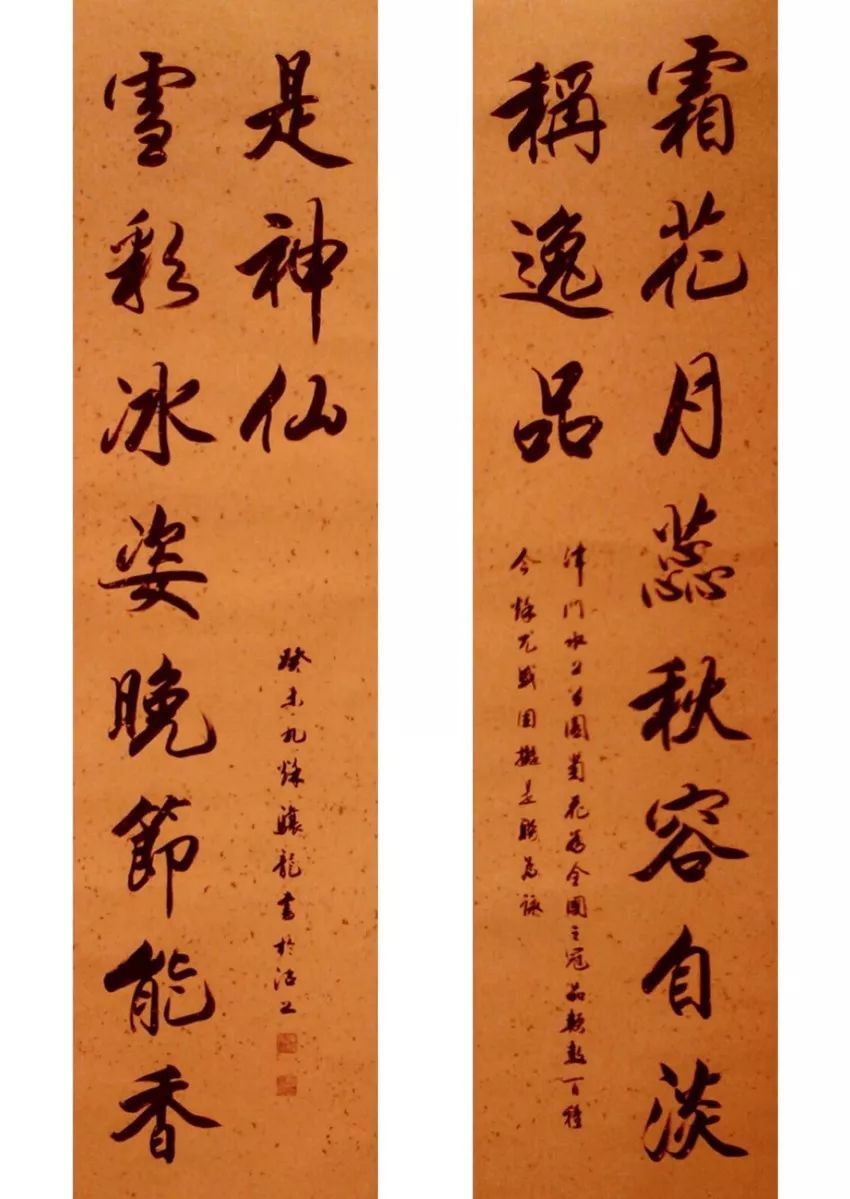 霜花月蕊秋容自淡
稱逸品
津門水上公園菊花為全國之冠品類數百種
今秋尤盛因擬是聯為詠
雪彩冰姿晚節能香
是神仙
癸未九秋驤龍書於沽上